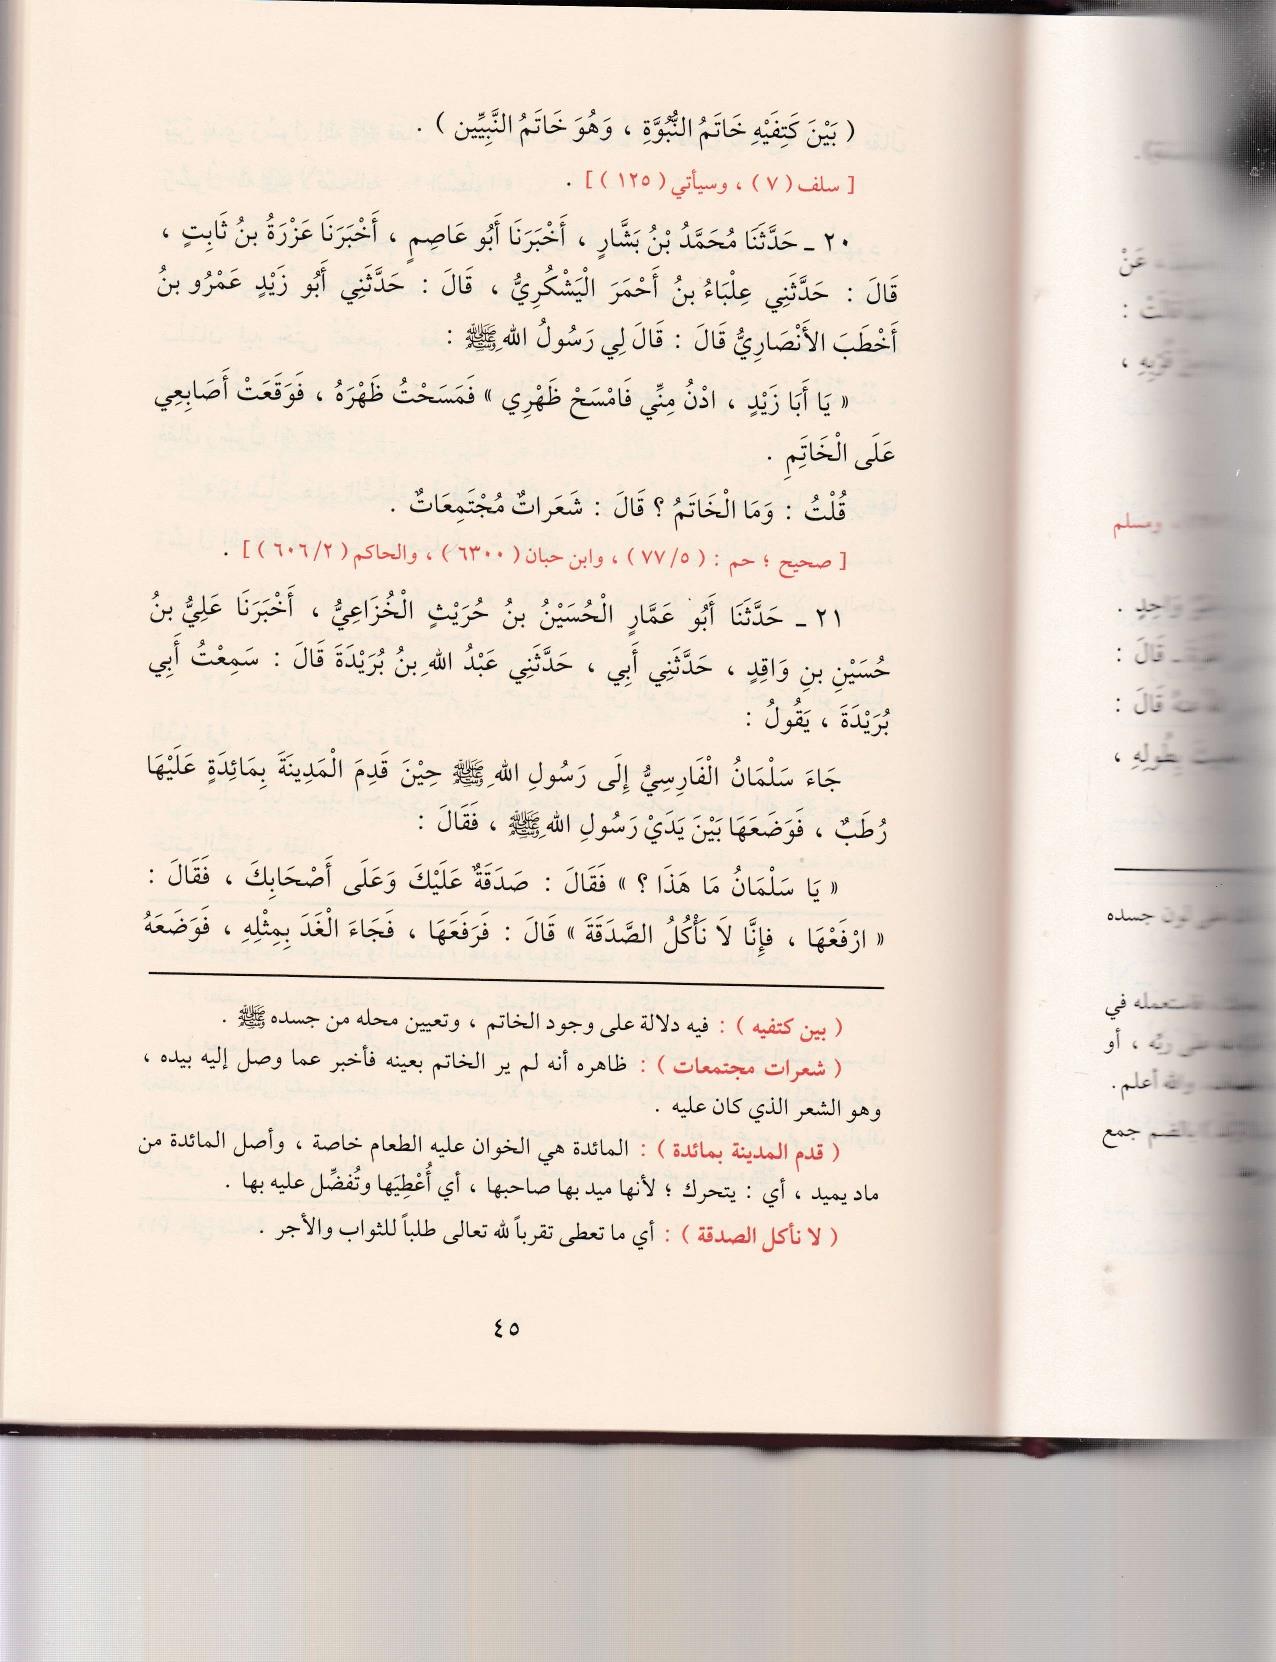 ( بَيْنَ كَتِفَيْهِ خَاتَمُ النُّبُوَّةِ ، وَهُوَ خَاتَمُ النَّبِيِّين ) .
[ سلف ( ٧ ) ، وسيأتي ( ١٢٥ ) ] .
٢٠ ـ حَدَّثَنَا مُحَمَّدُ بْنُ بَشَّارٍ ، أَخْبَرَنَا أَبُو عَاصِمٍ ، أَخْبَرَنَا عَزْرَةُ بنُ ثَابِتٍ ،
قَالَ : حَدَّثَنِي عِلْبَاءُ بنُ أَحْمَرَ الْيَشْكُرِيُّ ، قَالَ : حَدَّثَنِي أَبُو زَيْدٍ عَمْرُو بنُ
أَخْطَبَ الأَنْصَارِيُّ قَالَ : قَالَ لِي رَسُولُ اللهِ ﷺ :
« يَا أَبَا زَيْدٍ ، ادْنُ مِنِّي فَامْسَحْ ظَهْرِي » فَمَسَحْتُ ظَهْرَهُ ، فَوَقَعَتْ أَصَابِعِي
عَلَى الْخَاتَمِ .
قُلْتُ : وَمَا الْخَاتَمُ ؟ قَالَ : شَعَرَاتٌ مُجْتَمِعَاتٌ .
[ صحيح ؛ حم : ( ٥/ ٧٧ ) ، وابن حبان ( ٦٣٠٠ ) ، والحاكم ( ٢/ ٦٠٦ ) ] .
٢١ ـ حَدَّثَنَا أَبُو عَمَّارٍ الْحُسَيْنُ بنُ حُرَيْثٍ الْخُزَاعِيُّ ، أَخْبَرَنَا عَلِيُّ بنُ
حُسَيْنِ بنِ وَاقِدٍ ، حَدَّثَنِي أَبِي ، حَدَّثَنِي عَبْدُ اللهِ بنُ بُرَيْدَةَ قَالَ : سَمِعْتُ أَبِي
بُرَيْدَةَ ، يَقُولُ :
جَاءَ سَلْمَانُ الْفَارِسِيُّ إِلَى رَسُولِ اللهِ ﷺ حِيْنَ قَدِمَ الْمَدِينَةَ بِمَائِدَةٍ عَلَيْهَا
رُطَبٌ ، فَوَضَعَهَا بَيْنَ يَدَيْ رَسُولِ اللهِ ﷺ ، فَقَالَ :
« يَا سَلْمَانُ مَا هَذَا ؟ » فَقَالَ : صَدَقَةٌ عَلَيْكَ وَعَلَى أَصْحَابِكَ ، فَقَالَ :
« ارْفَعْهَا ، فَإِنَّا لَا نَأْكُلُ الصَّدَقَةَ » قَالَ : فَرَفَعَهَا ، فَجَاءَ الْغَدَ بِمِثْلِهِ ، فَوَضَعَهُ
( بين كتفيه ) : فيه دلالة على وجود الخاتم ، وتعيين محله من جسده ﷺ .
( شعرات مجتمعات ) : ظاهره أنه لم ير الخاتم بعينه فأخبر عما وصل إليه بيده ،
وهو الشعر الذي كان عليه .
( قدم المدينة بمائدة ) : المائدة هي الخوان عليه الطعام خاصة ، وأصل المائدة من
ماد يميد ، أي : يتحرك ؛ لأنها ميد بها صاحبها ، أي أُعْطِيَها وتُفضِّل عليه بها .
( لا نأكل الصدقة ) : أي ما تعطى تقرباً لله تعالى طلباً للثواب والأجر .
٤٥
عَنْ
قَالَتْ :
ومسلم
وَاحِدٍ .
قَالَ :
قَالَ :
بِطُولِهِ ،
لون جسده
فاستعمله في
ربُّه ، أو
والله أعلم .
بالضم جمع